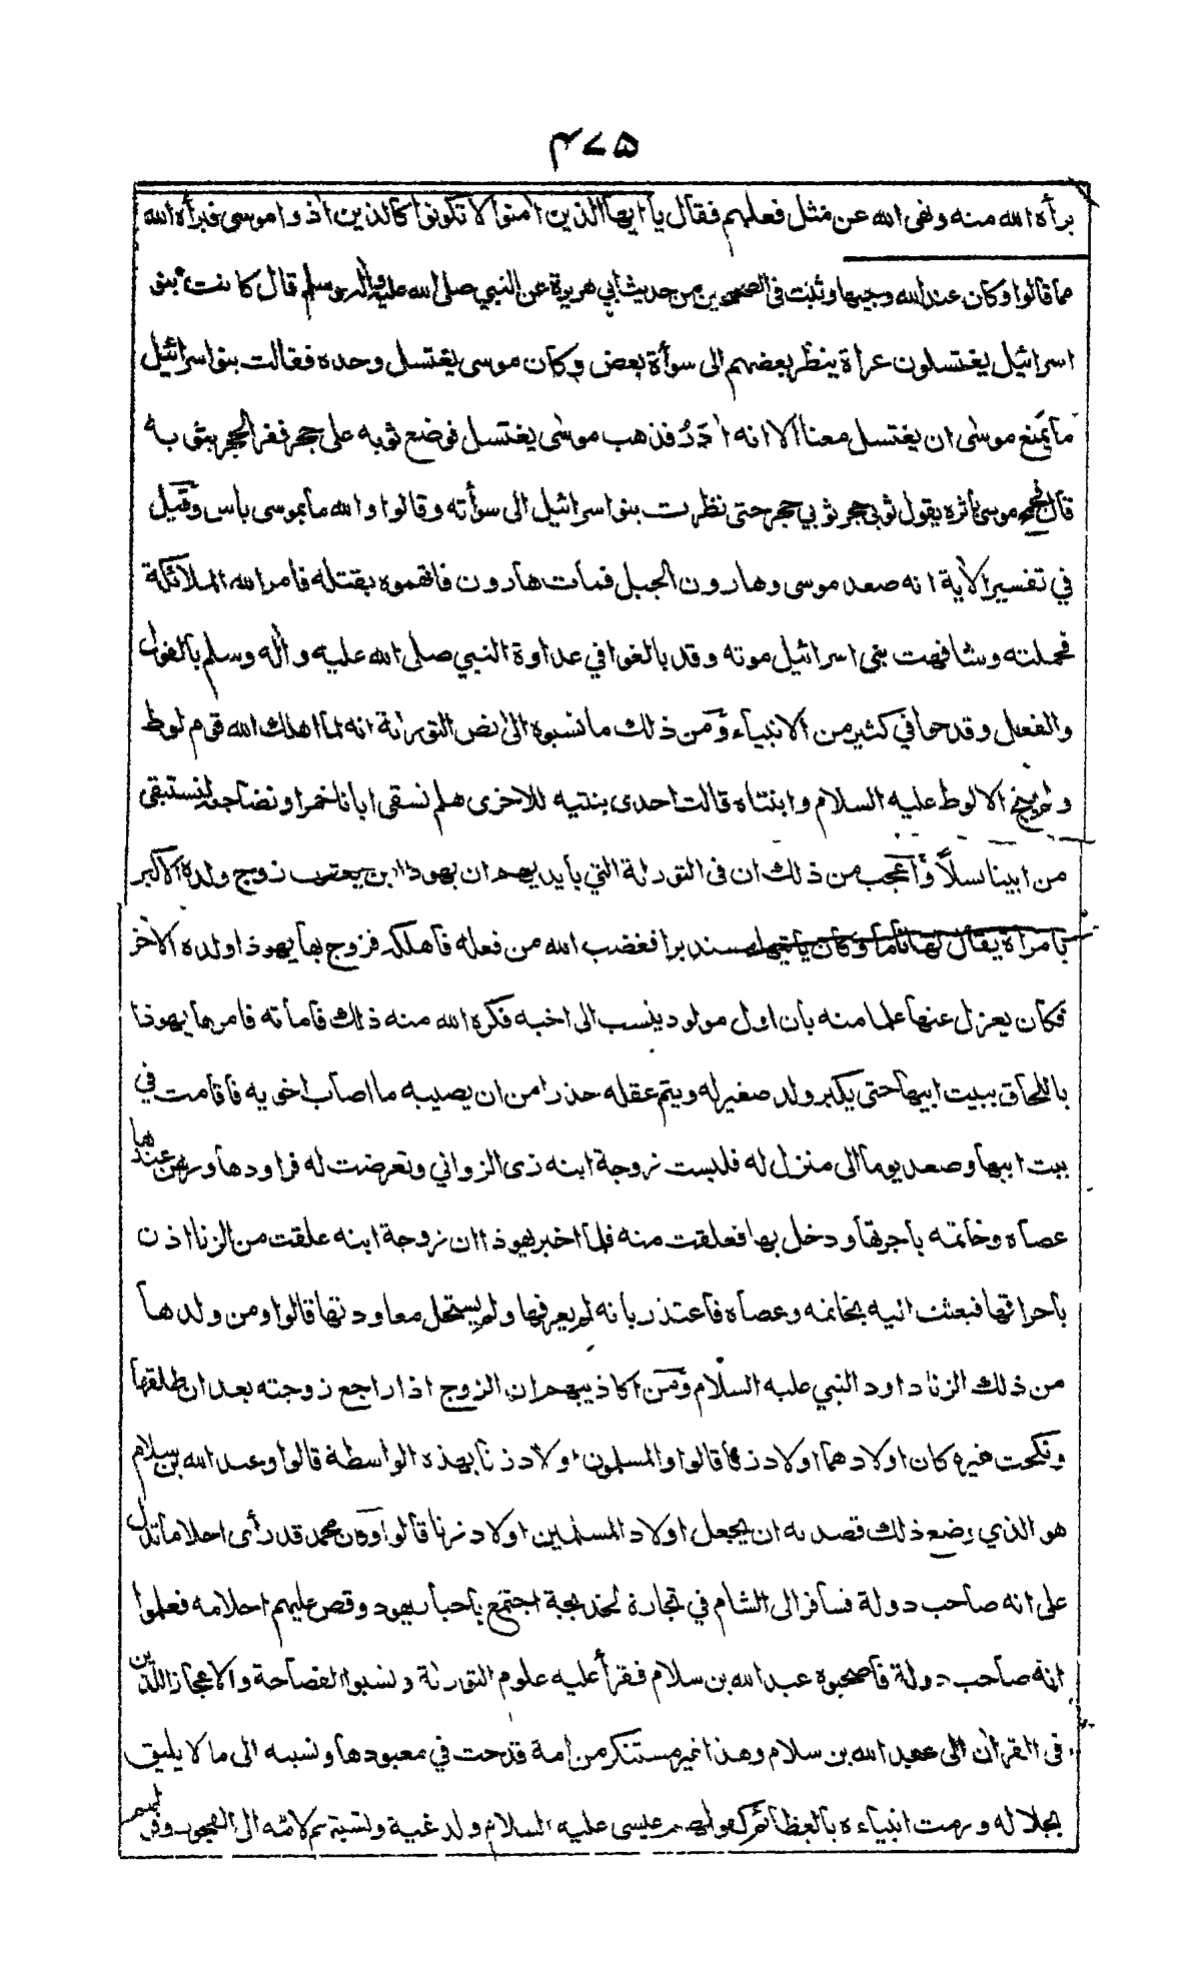 ۴۷۵
برأه الله منه ونهى الله عن مثل فعلهم فقال يا ايها الذين امنوا لا تكونوا كالذين اذوا موسى فبرأه الله
مما قالوا وكان عند الله وجيها وثبت فى الصحيحين من حديث ابي هريرة عن النبي صلى الله عليه واله وسلم قال كانت بنو
اسرائيل يغتسلون عراة ينظر بعضهم الى سوأة بعض وكان موسى يغتسل وحده فقالت بنو اسرائيل
ما يمنع موسى ان يغتسل معنا الا انه ادر فذهب موسى يغتسل فوضع ثوبه على حجر ففر الحجر بثوبه
قال فجمح موسى باثره يقول ثوبي حجر ثوبي حجر حتى نظرت بنو اسرائيل الى سوأته وقالوا والله ما بموسى باس وقيل
في تفسير الأية انه صعد موسى وهارون الجبل فمات هارون فاتهموه بقتله فامر الله الملائكة
فحملته وشافهت بنى اسرائيل موته وقد بالغوا في عداوة النبي صلى الله عليه واله وسلم بالقول
والفعل وقدحوا في كثير من الانبياء ومن ذلك ما نسبوه الى نص التوراة انه لما اهلك الله قوم لوط
ولم ينج الا لوط عليه السلام وابنتاه قالت احدى بنتيه للاخرى هلم نسقى ابانا خمرا ونضاجعه لنستبقى
من ابينا نسلاً وأعجب من ذلك ان فى التوراة التي بأيديهم ان يهوذا بن يعقوب زوج ولده الأكبر
بامرأة يقال لها تاما وكان يأتيها مستدبرا فغضب الله من فعله فأهلكه فزوج بها يهوذا ولده الأخر
فكان يعزل عنها علما منه بان اول مولود ينسب الى اخيه فكره الله منه ذلك فاماته فامرها يهوذا
باللحاق ببيت ابيها حتى يكبر ولد صغير له ويتم عقله حذرا من ان يصيبه ما اصاب اخويه فأقامت في
بيت ابيها وصعد يوما الى منزل له فلبست زوجة ابنه زى الزواني وتعرضت له فراودها ورهن عندها
عصاه وخاتمه بأجرتها ودخل بها فعلقت منه فلما اخبر يهوذا ان زوجة ابنه علقت من الزنا اذن
باحراقها فبعثت اليه بخاتمه وعصاه فأعتذر بانه لم يعرفها ولم يستحل معاودتها قالوا ومن ولدها
من ذلك الزنا داود النبي عليه السلام ومن اكاذيبهم ان الزوج اذا راجع زوجته بعد ان طلقها
ونكحت غيره كان اولادهما اولاد زنا قالوا والمسلمون اولاد زنا بهذه الواسطة قالوا وعبد الله بن سلام
هو الذي وضع ذلك قصد به ان يجعل اولاد المسلمين اولاد زنا قالوا وكان محمد قد رأى احلاما تدل
على انه صاحب دولة فسافر الى الشام في تجارة لخديجة اجتمع بأحبار يهود وقص عليهم احلامه فعلموا
انه صاحب دولة فأصحبوه عبد الله بن سلام فقرأ عليه علوم التوراة ونسبوا الفصاحة والاعجاز اللذين
فى القرأن الى عبد الله بن سلام وهذا غير مستنكر من امة قدحت في معبودها ونسبه الى ما لا يليق
بجلاله ورمت انبياءه بالعظائم كقولهم عيسى عليه السلام ولد غية ونسبتهم لامه الى الفجور وقولهم